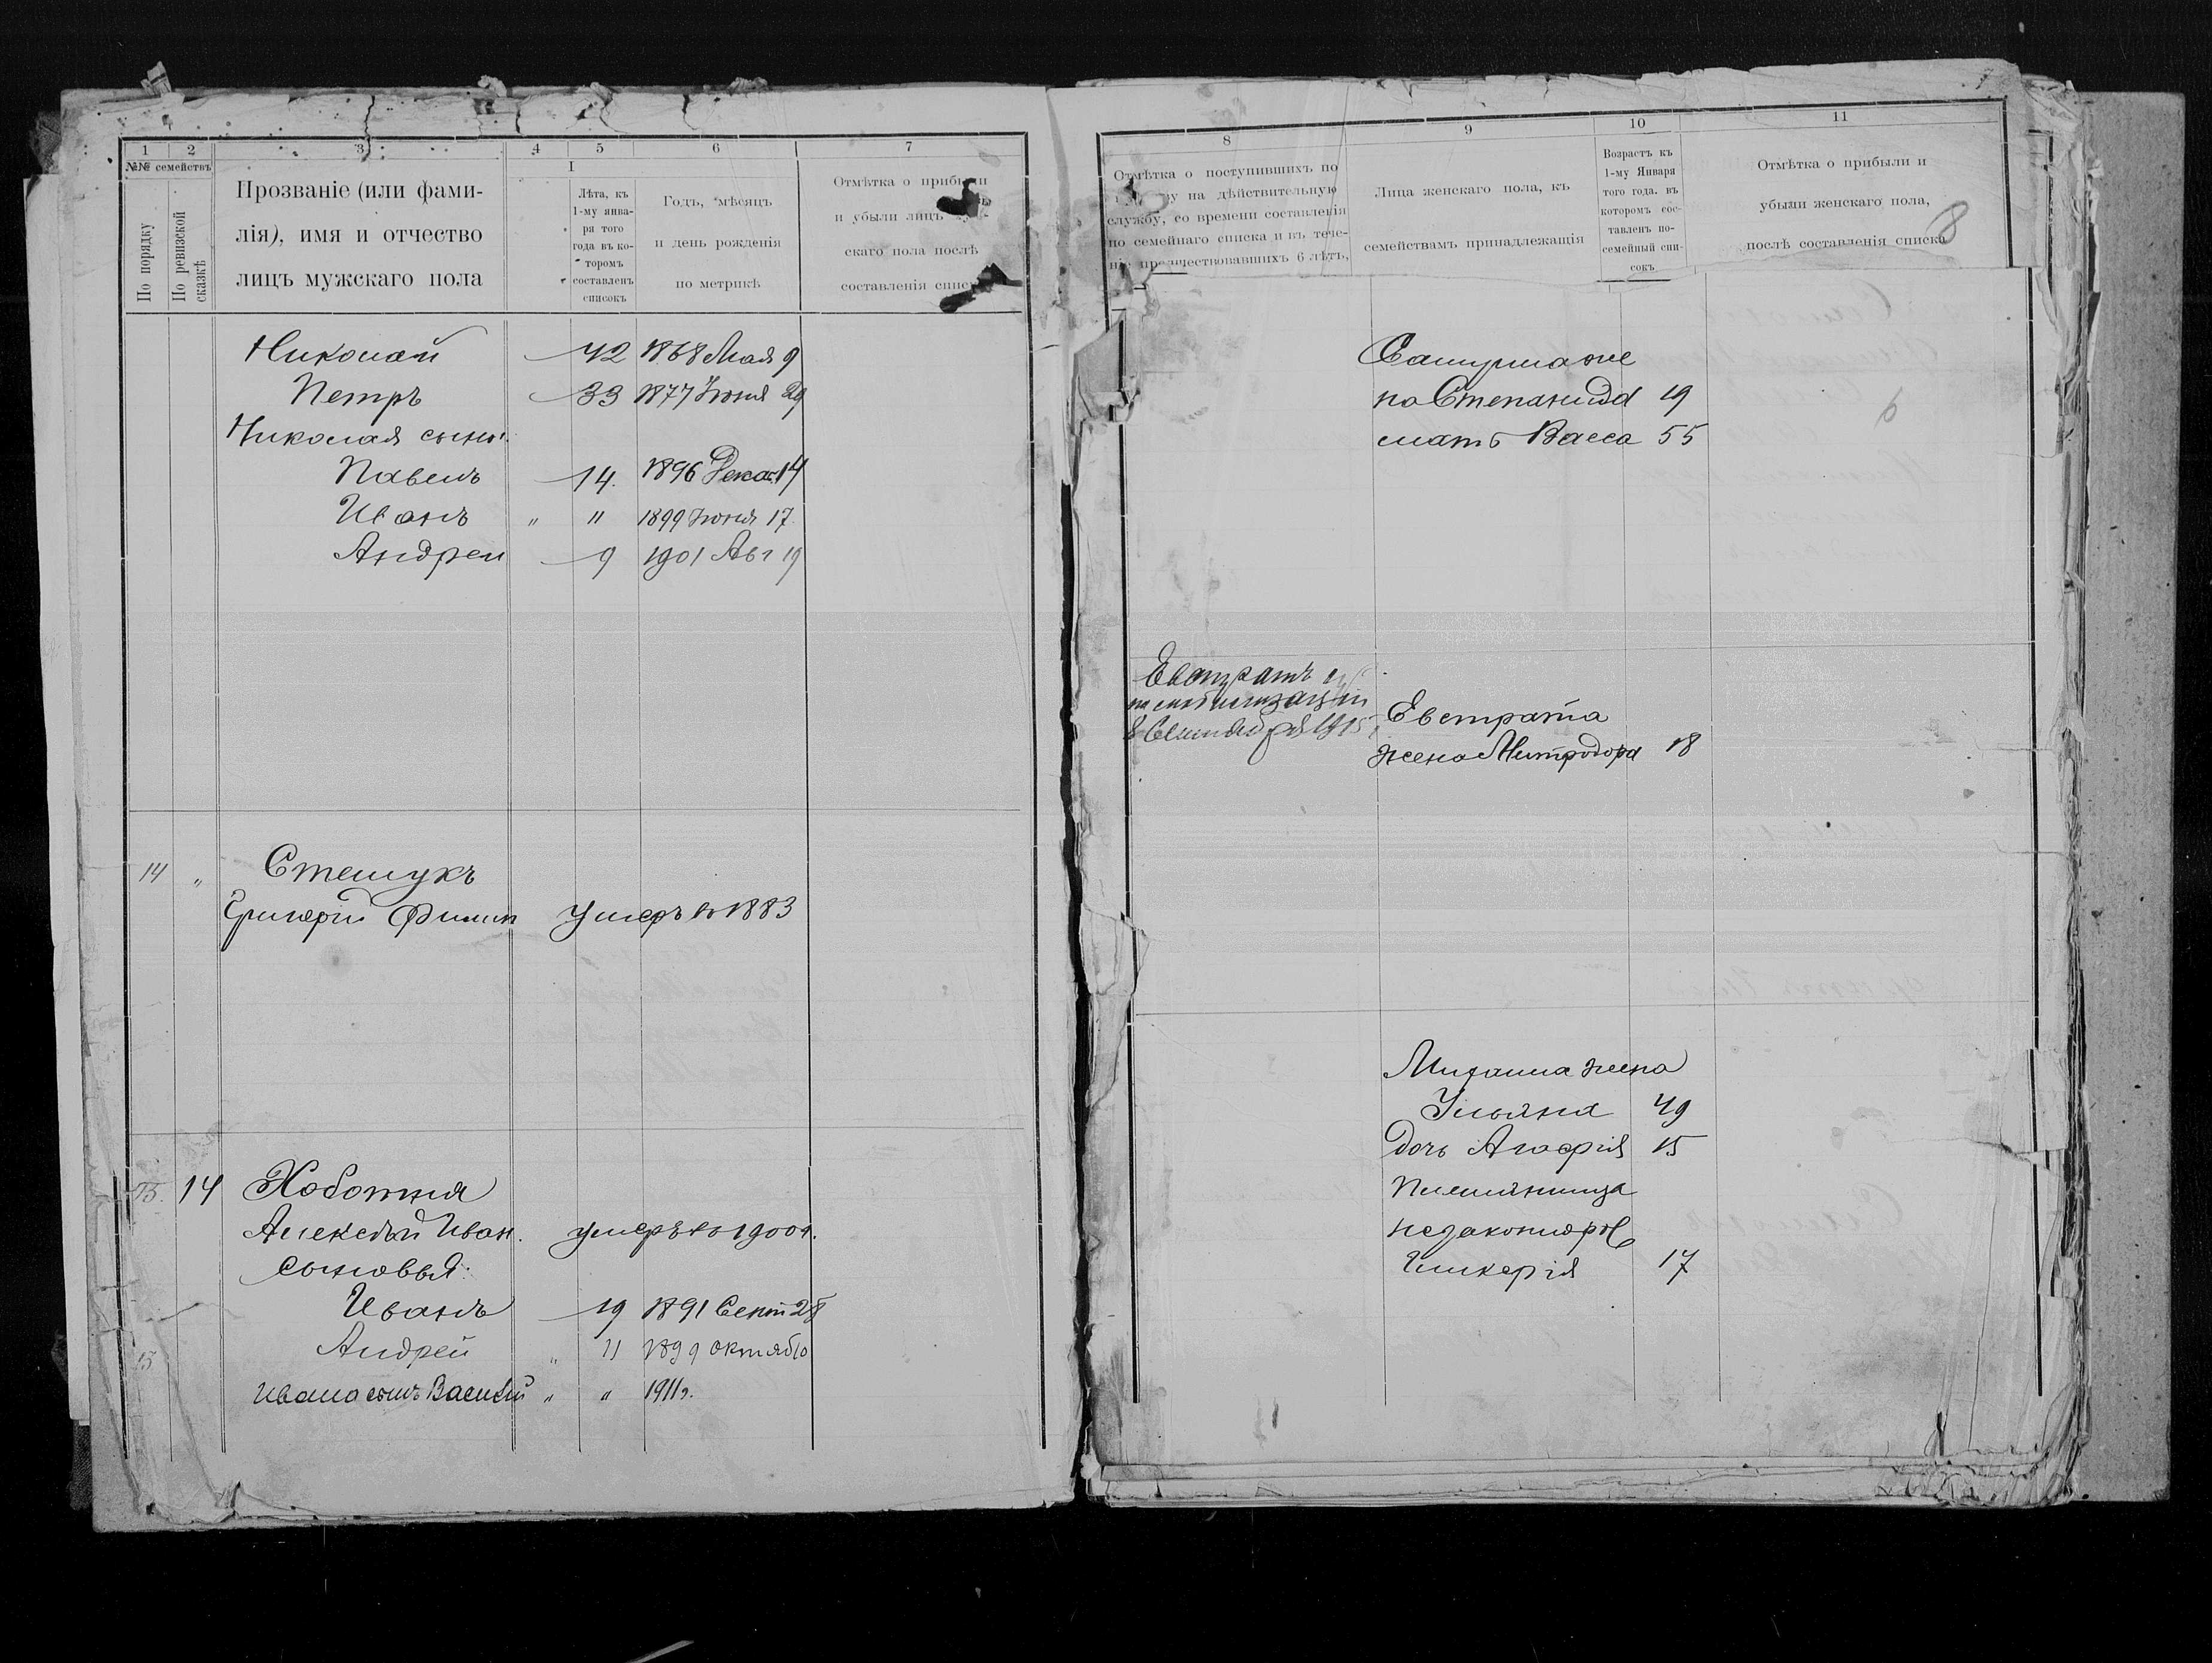 1 2 3 4 5 6 7
№№ семействъ
По порядку
По ревизской сказкѣ
Прозваніе (или фами-
лія), имя и отчество
лицъ мужскаго пола
I
Лѣта, къ
1-му янва-
ря того
года въ ко-
торомъ
составленъ
списокъ
Годъ, мѣсяцъ
и день рожденія
по метрикѣ
Отмѣтка о прибыли
и убыли лицъ
скаго пола послѣ
составленія
Николай 42 1868 Мая 9
Петръ 33 1877 Іюня 29
Николая сыны:
Павелъ 14. 1896 Декаб. 14
Иванъ " 11 1899 Іюня 17.
Андрей 9 1901 Авг 19
14 "
Стецукъ
Григорій Филип умеръ въ 1883
15. 14 Хоботня
Алексѣй Иван. умеръ въ 1900г.
сыновья:
Иванъ 19 1891 Сент 28
Андрей " 11 1899 Октяб 10
15
Ивана сынъ Василій " " 1911г.
8 9 10 11
Отмѣтка о поступившихъ по
на дѣйствительную
службу, со времени составленія
по семейнаго списка и въ тече-
ніе предшествовавшихъ 6 лѣтъ,
Лица женскаго пола, къ
семействамъ принадлежащія
Возрастъ къ
1-му Января
того года. въ
которомъ сос-
тавленъ по-
семейный спи-
сокъ
Отмѣтка о прибыли и
убыли женскаго пола,
послѣ составленія списка
8
же
на Степанида 19
мать Васса 55
Евстратъ
по мобилизаціи
8 Сентября 1915
Евстрата
жена Митродора 18
Михаила жена
Ульяна 49
дочь Агафія 15
Племянница
незаконнор
Гликерія 17